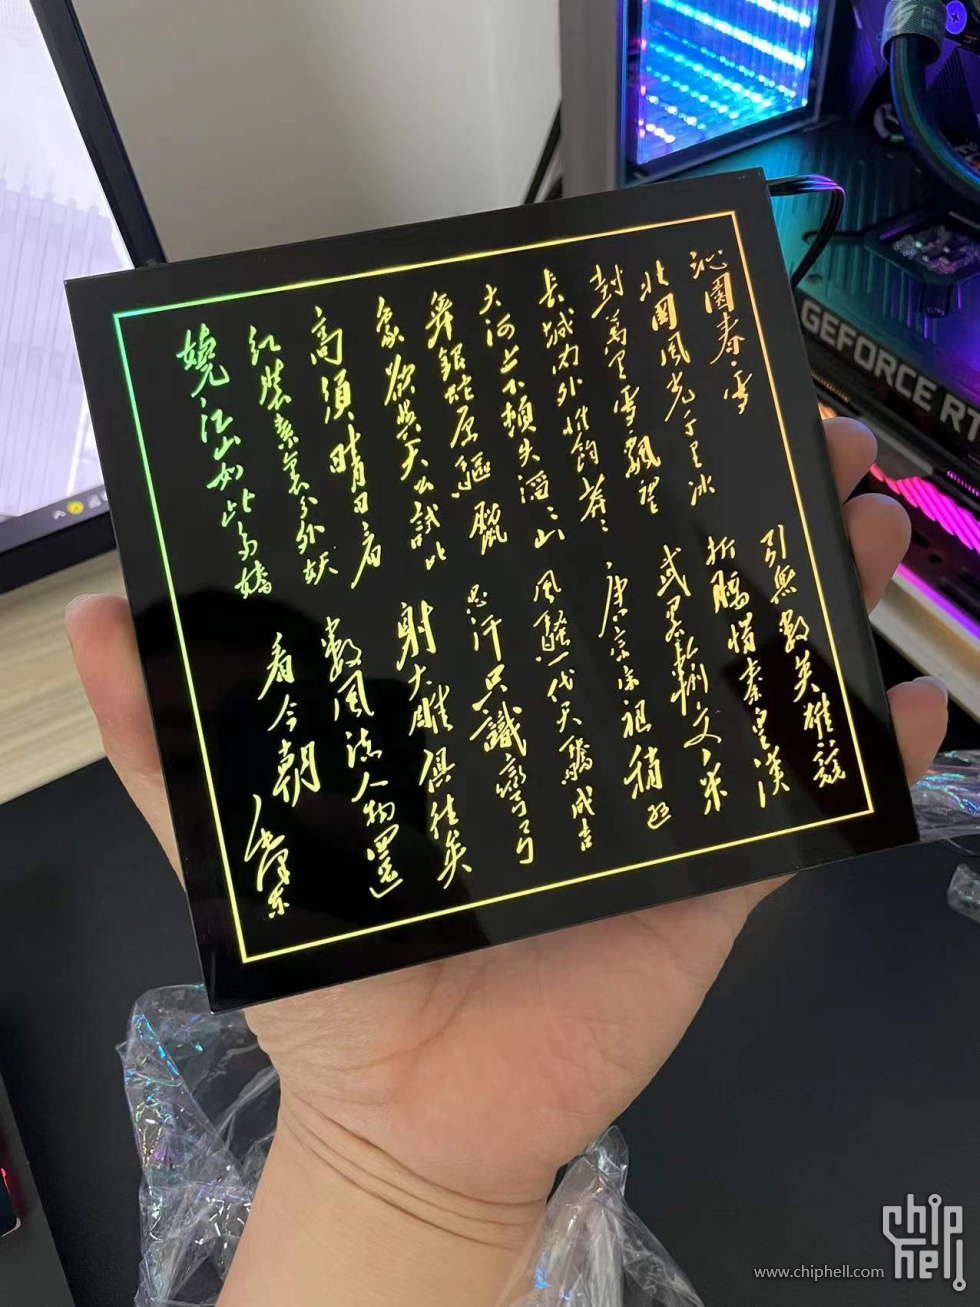 沁園春·雪
北國風光千里冰
封萬里雪飄望
長城內外惟餘莽〻
大河上下頓失滔〻山
舞銀蛇原驅臘
象欲與天公試比
高須晴日看
紅裝素裹分外妖
嬈江山如此多嬌
引無數英雄競
折腰惜秦皇漢
武畧輸文采
唐宗宋祖稍遜
風騷一代天驕成吉
思汗只識彎弓
射大雕俱往矣
數風流人物還
看今朝
毛澤東
GEFORCE RT
chip
hell
www.chiphell.com